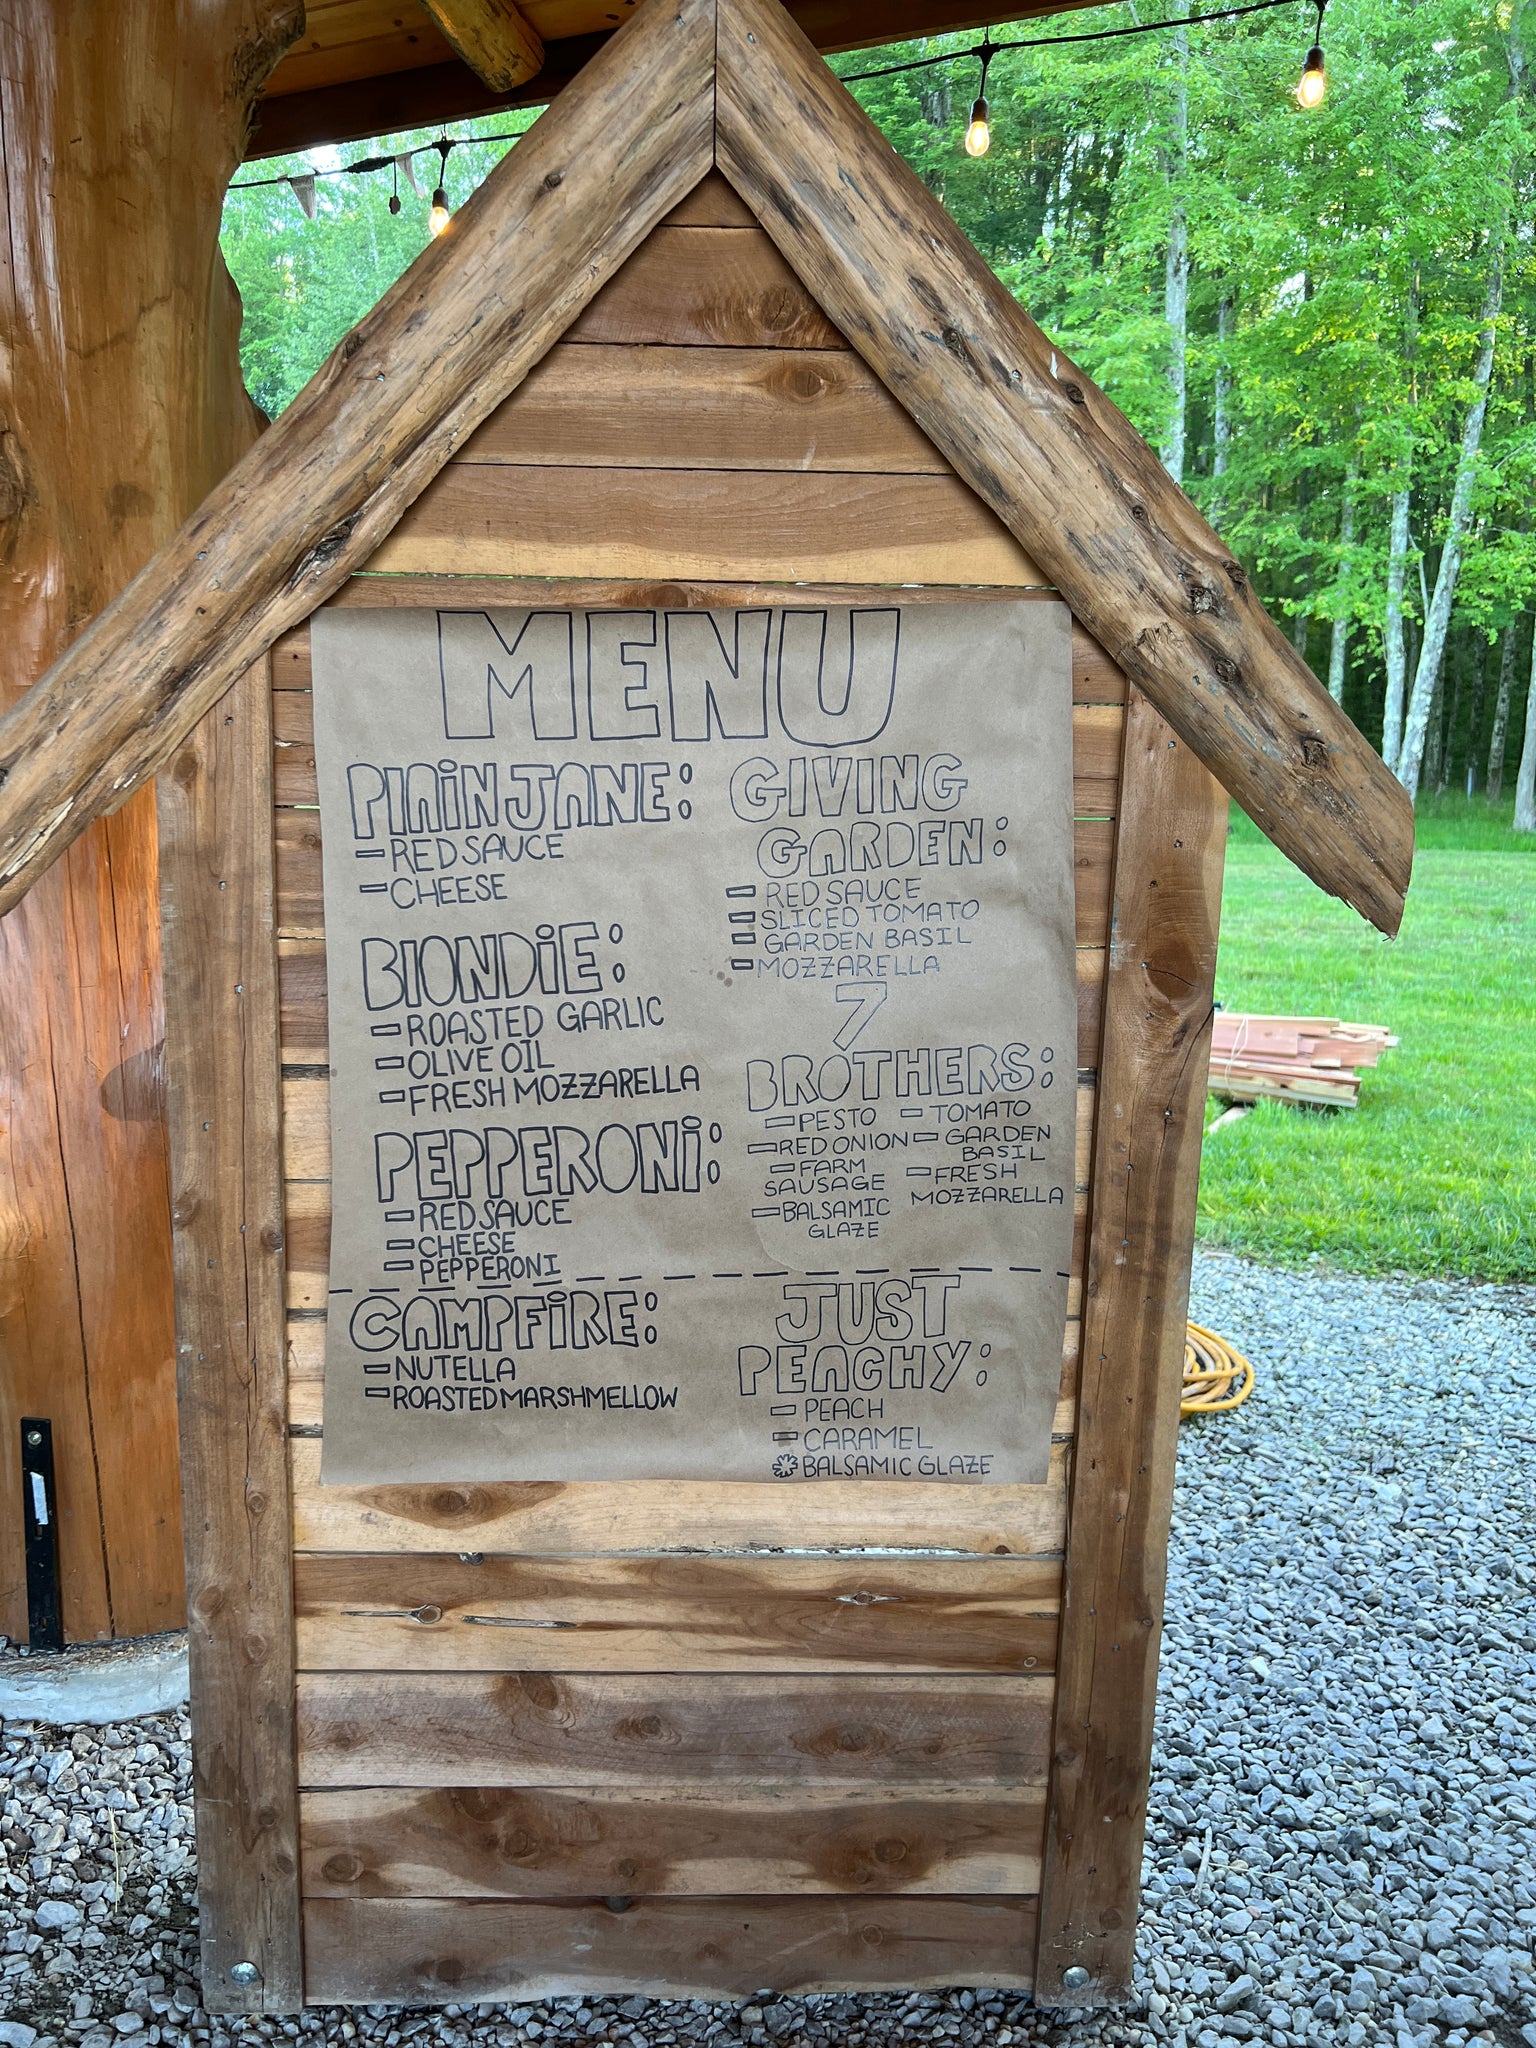 MENU
PLAIN JANE:
- RED SAUCE
- CHEESE
BLONDIE:
- ROASTED GARLIC
- OLIVE OIL
- FRESH MOZZARELLA
PEPPERONI:
- RED SAUCE
- CHEESE
- PEPPERONI
GIVING
GARDEN:
- RED SAUCE
- SLICED TOMATO
- GARDEN BASIL
- MOZZARELLA
7
BROTHERS:
- PESTO
- RED ONION
- FARM
SAUSAGE
- BALSAMIC
GLAZE
- TOMATO
- GARDEN
BASIL
- FRESH
MOZZARELLA
CAMPFIRE:
- NUTELLA
- ROASTED MARSHMELLOW
JUST
PEACHY:
- PEACH
- CARAMEL
* BALSAMIC GLAZE